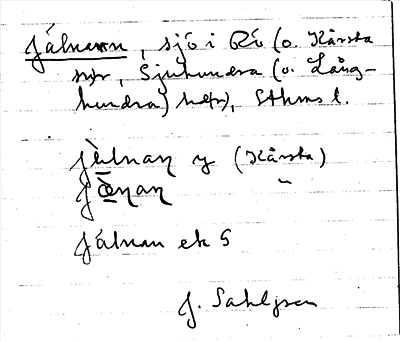 Jälnan, sjö i Rö (o. Kårsta
snr, Sjuhundra (o. Lång-
hundra) hdr), Sthms l.
jälnaɳ y (Kårsta)
jænaɳ "
Jälnan ek 5
J. Sahlgren